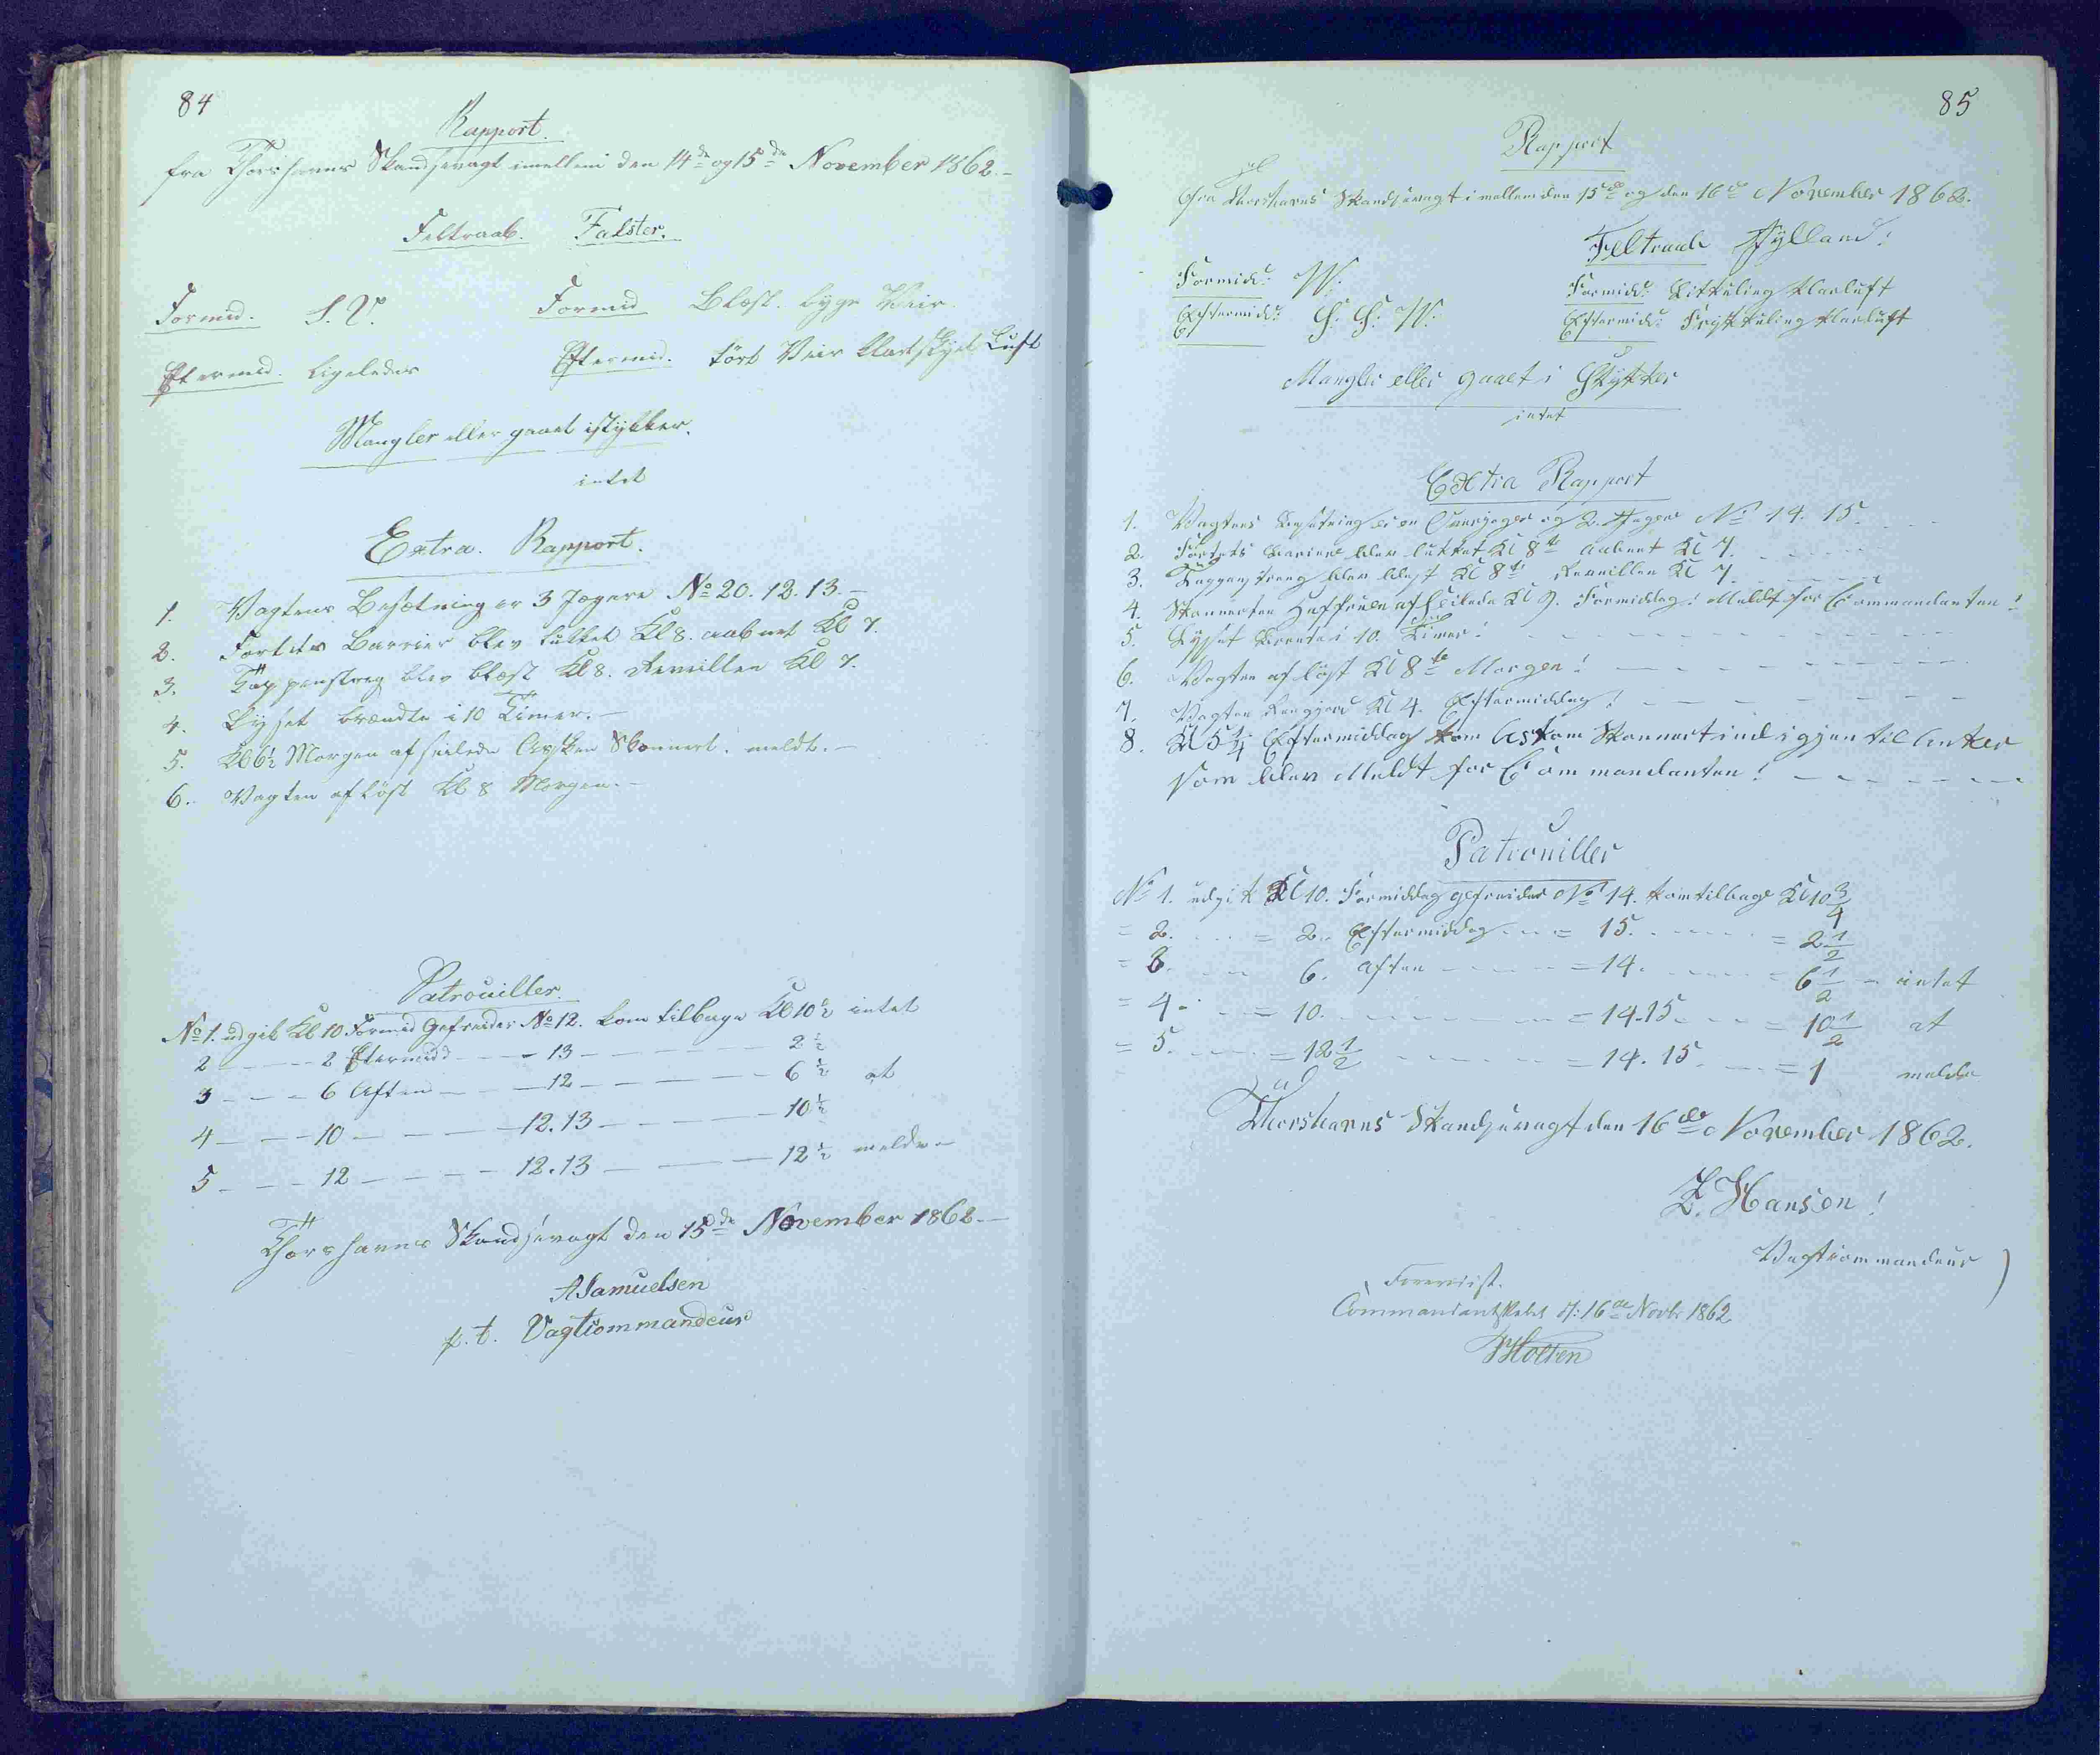 84
Rapport.
fra Thorshavns Skandsevagt imellem den 14de og 15de November 1862.
Feltraab. Falster.
Formid. S. V. Formid Blæst. byge Veir
Eftermid. ligeledes Eftermid. tört Veir klart skyet Luft
Mangler eller gaaet istykker.
intet
Extra. Rapport.
1. Vagtens Besætning er 3 Jægere No 20. 12. 13.
2. Fortets Barrier blev lukket Kl 8. aabnet Kl 7.
3. Tappenstreg blev blæst Kl 8. Revillen Kl 7.
4. Lyset brændte i 10 Timer.
5. Kl 6½ Morgen afseilede Skonnert. meldt.
6. Vagten aflöst Kl 8 Morgen.
Patrouiller.
No 1. udgik Kl 10 Formid Gefreider No 12. kom tilbage Kl 10½ intet
2 - - - 2 Eftermidd - - - 13 - - - 2½
3 - - - 6 Aften - - - 12 - - - 6½ at
4 - - - 10 - - - 12.13 - - - 10½
5 - - - 12 - - - 12.13 - - - 12½ melde
Thorshavns Skandsevagt den 15de November 1862.
A Samuelsen
p. t. Vagtcommandeur
85
Rapport
fra Thorshavns Skandsevagt imellem den 15de og den 16de November 1862.
Feltraab Jylland!
Formidd: W. Formidd: Kulling klarluft
Eftermidd: S. S. W. Eftermidd: Frisk Kuling klarluft
Mangler eller gaaet i Stykker
intet
Extra Rapport
1. Vagtens Besætning er en Overjæger og 2. Jægere No 14. 15.
2. Fortets Bariere blev lukket Kl 8te aabent Kl 7.
3. Tappenstreeg blev blæst Kl 8te Reveillen Kl 7.
4. Skonnerten Havfruen afseilede Kl 9. Formiddag! Meldt for Commandanten!
5. Lyset brente i 10. Timer!
6. Vagten aflöst Kl 8te Morgen!
7. Vagten Rengjord Kl 4. Eftermiddag!
8. Kl 5¼ Eftermiddag kom Skonnert ind igjen til Anker
som blev Meldt for Commandanten!
Patrouiller
No 1. udgik Kl 10. Formiddag gefreider No 14. kom tilbage Kl 10¾
= 2. - - = 2. Eftermiddag - - = 15. - - = 2½
= 3. - - 6. Aften - - = 14. - - = 6½ - intet
= 4. - - = 10. - - = 14.15. - - = 10½ at
= 5. - - = 12½ - - = 14. 15. - - = 1 melde
Thorshavns Skandsevagt den 16de November 1862.
Z. Hansen!
Vagtcommandeur
Foreviist.
Commandantskabet d: 16de Novbr 1862
Holten